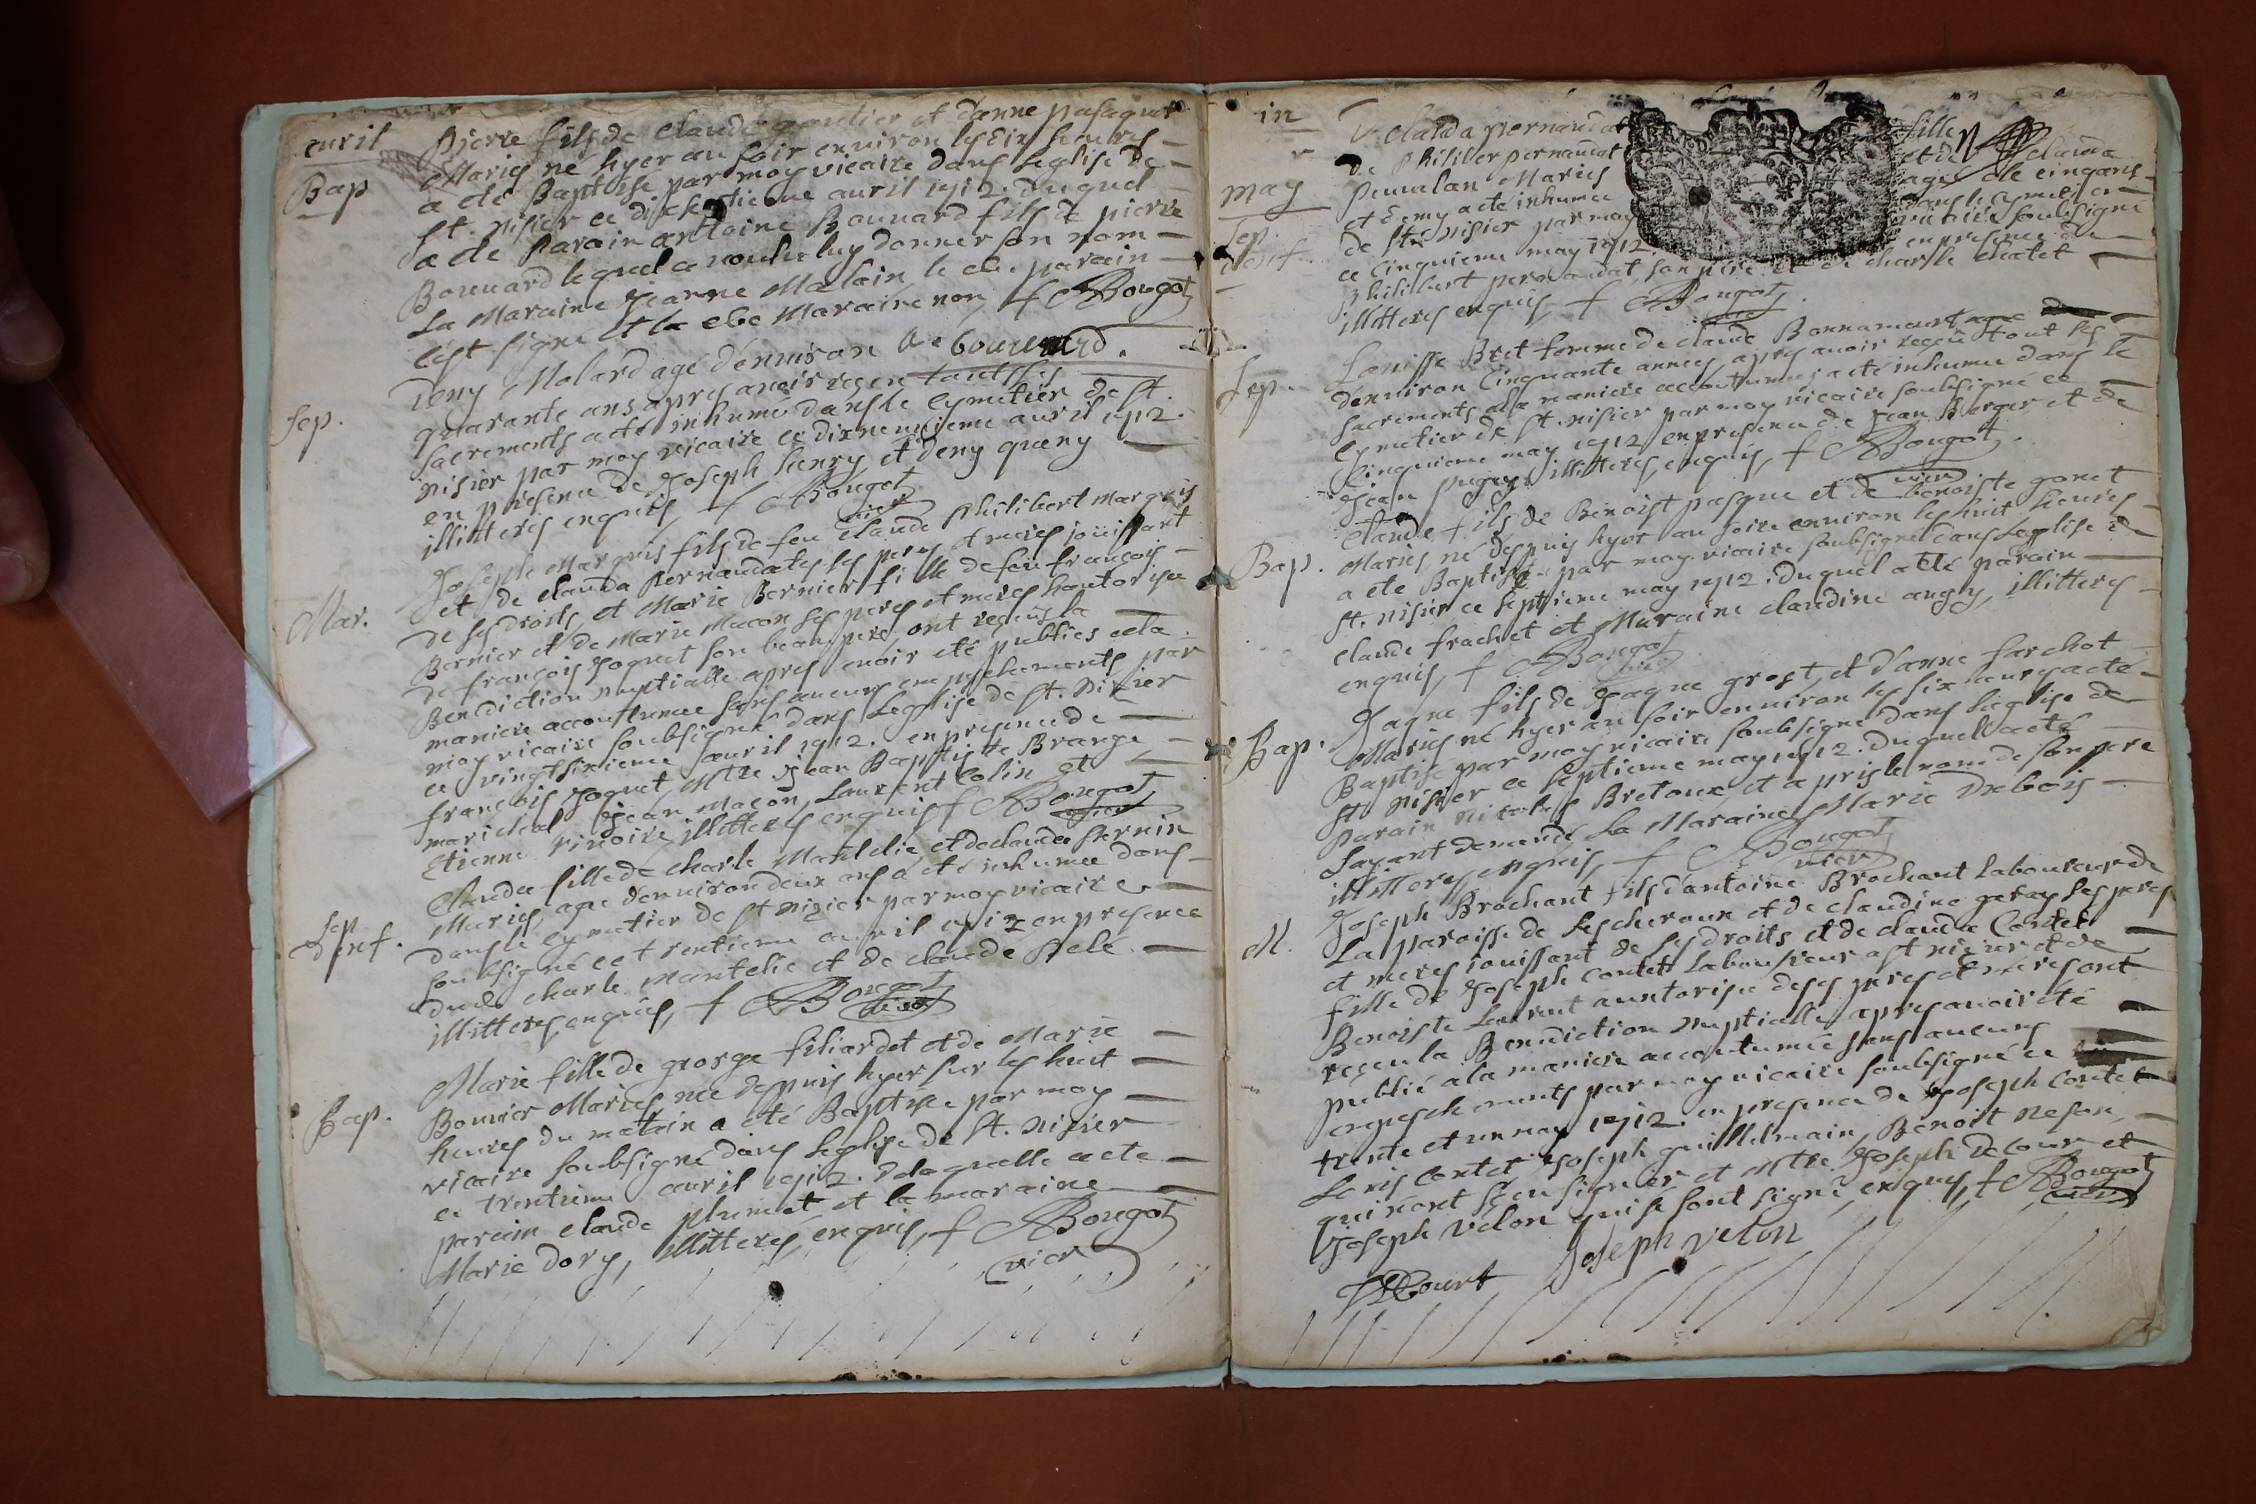 avril
Pierre fils de Claude gautier et d'anne pasaguet
Bap
Mariés né hyer au soir environ les dix heures
a été Baptisé par moy vicaire dans l'eglise de
st. nisier ce dix septieme avril 1712. duquel
a été Parain antoine Bouuard fils de pierre
Bouuard lequel a voulu luy donner son nom
La Maraine Jeanne Malain, le du. parain
s'est signé et la dte Maraine non, f Bougot
A. bouuard.
Sep.
Deny Molard agé d'environ
quarante ans apres avoir reçeu touts ses
sacrements a eté inhumé dans le Cymetier de st.
nisier par moy vicaire ce dixneuvieme avril 1712.
en presence de Joseph henry et deny queny
illitteres enquis, f Bougot
vicr
Mar.
Joseph Marquis fils de feu Claude philibert marquis
et de clauda Pernaudat ses peres et meres joüissant
de ses droits, et Marie Bernier fille de feu françois
Bernier et de Marie Macon ses peres et meres hautorisee
de françois Joquet son beaupere, ont reçeus la
Benediction nuptialle apres avoir eté publies a la
maniere accoutumee sans aucuns empechements par
moy vicaire soubsigné dans L'eglise de st. nizier
ce vingt sixieme avril 1712. en presence de
françois Joquet, Mtre Jean Baptiste Brange
marichal Jean Macon, Laurent Colin et
Etienne vinoire, illitteres enquis f Bougot
vicr
Sep
d'enf.
Claudee fille de charle Mantelié et de claudee pernin
Mariés, agee d'environ deux ans a été inhumee dans
dans le cymetier de st nizier par moy vicaire
soubsigné ce trentieme avril 1712 en presence
dudt charle Mantelié et de claude Pele
illitteres enquis, f Bougot
vicr
Bap.
Marie fille de george filiardet et de Marie
Bouvier Mariés nee depuis hyer sur les huit
heures du matin a été Baptisee par moy
vicaire soubsigné dans l'eglise de st. nizier
ce trentieme avril 1712. de laquelle a ete
parain claude plumet et la maraine
Marie dory, illitteres, enquis, f Bougot
vicr
in
Clauda pernaudat fille
de Philiber pernaudat et de Clauda
may
Sep.
d'enf.
Mariés agee de cinq ans
et demy a eté inhumee dans le Cymetier
de st. nisier par moy vicaire soubsigné
ce Cinquieme may 1712 en presence de
Philibert pernaudat, son pere et de charle chatet
illitteres enquis, f Bougot
Sep.
Louisse Bret femme de claude Bonnamour agee
d'environ Cinquante annees apres avoir reçeu tout ses
sacrements a la maniere accoutumee, a eté inhumee dans le
Cymetier de st. nisier par moy vicaire soubsigné ce
Cinquieme may 1712 en presence de Jean Berger et de
Jean illitteres enquis, f Bougot.
vicr
Bap.
Claude fils de Benoist pasque et de benoiste gonet
Mariés né depuis hyer au soire environ les huit heures
a ete Baptisé par moy vicaire soubsigné dans L'eglise de
st. nisier ce septieme may 1712. duquel a eté parain
claude frachet et Maraine claudine angy, illitteres
enquis, f Bougot
vicr
Bap.
Jaque fils de Jaque grost, et d'anne farchot
Mariés né hyer au soir environ les six heures a eté
Baptisé par moy vicaire soubsigné dans L'eglise de
st nisier ce septieme may 1712. duquell a eté
parain nicolas Bretoux et a pris le nom de son pere
l'ayant demandé La Maraine Marie Debois
illitteres enquis, f Bougot
vicr
M.
Joseph Brochant fils d'antoine Brochant Laboureur de
La paroisse de Lescheroux et de claudine geray ses peres
et meres jouissant de ses droits et de claudee Contet
fille de Joseph contet Laboureur a st nizier et de
Benoiste Laurent auutorisee de ses peres et meres ont
reçeu la Benediction nuptialle apres avoir été
publié a la maniere accoutumée sans aucuns
empeschements par moy vicaire soubsigné ce
trente et un may 1712. en presence de Joseph contet
Louis Contet Joseph guillelmain, Benoit neson,
qui n'ont sçeu signer et Mtre Joseph Decour et
Joseph velon qui se sont signé, enquis, f Bougot
vicr
JDCourt
Joseph velon